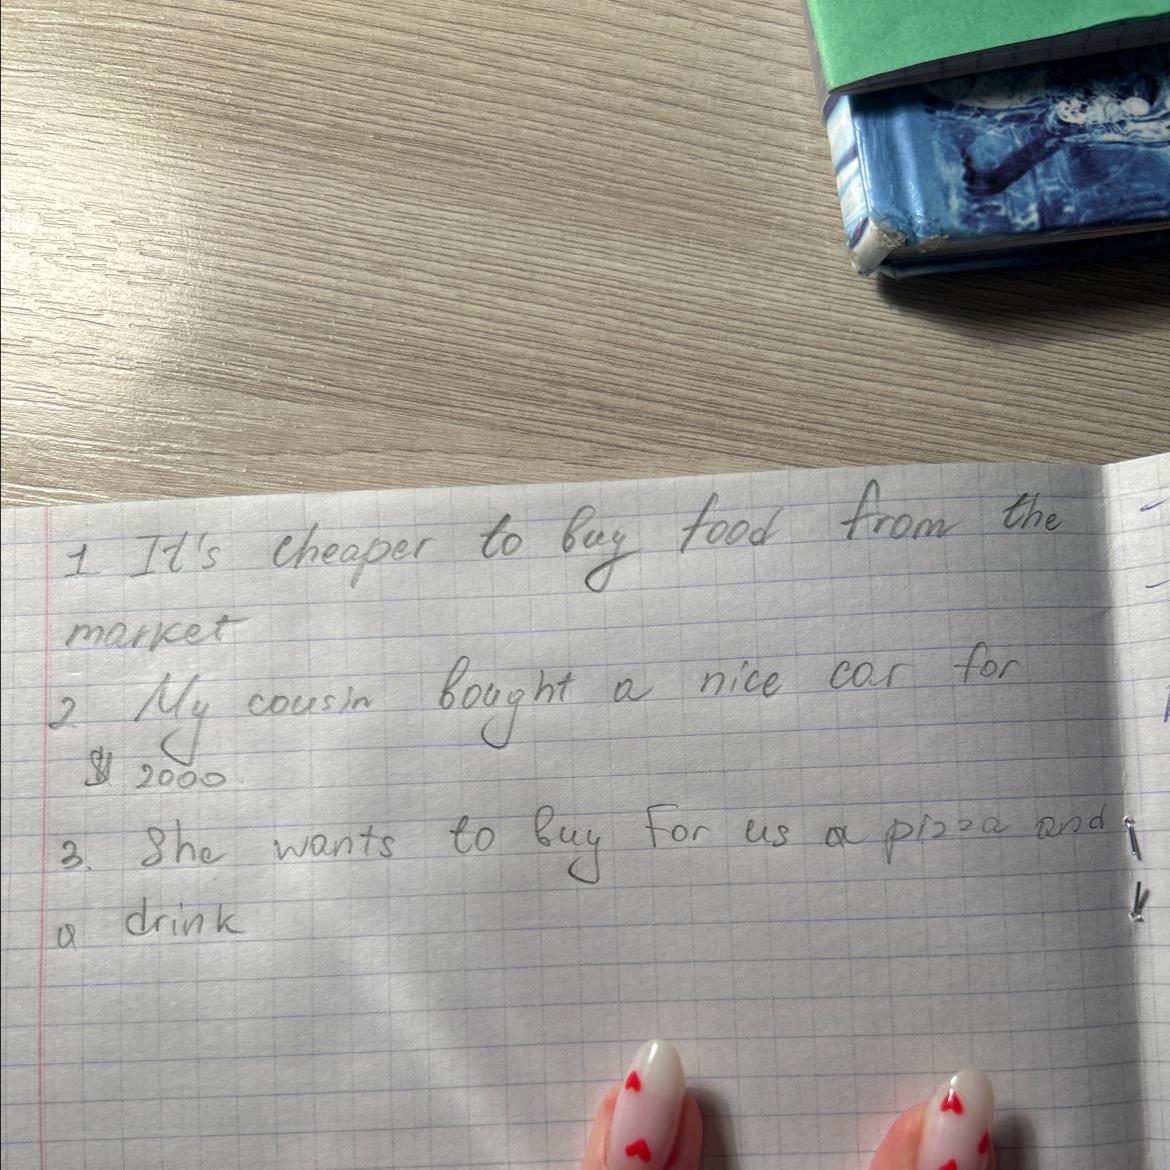 1 It's cheaper to buy food from the
market
2 My cousin bought a nice car for
$ 2000.
3. She wants to buy for us a pizza and
a drink